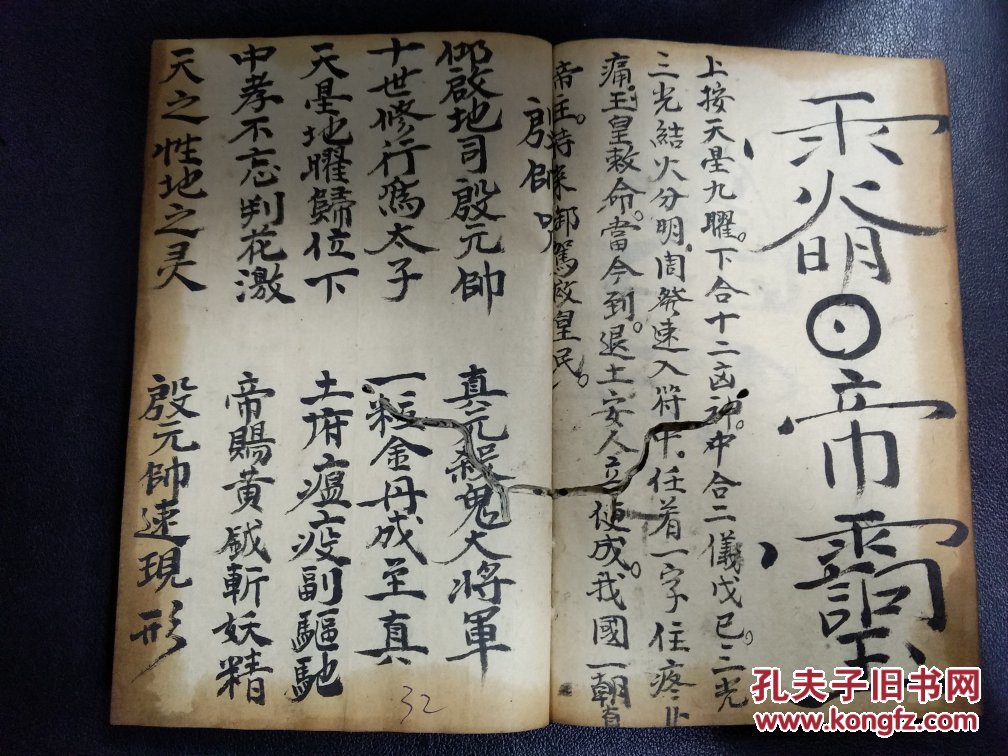 上按天星九曜。下合十二凶神。中合二儀戊己。三光
三光結火分明，周發速入符中，任着一字住疼止
痛。玉皇敕命。當今到。退土安人立便成。我國一朝真
帝王。特來御駕救皇民。
殷帥咒
仰啟地司殷元帥 真元殺鬼大將軍
十世修行為太子 一粒金丹成至真
天星地曜歸位下 土府瘟疫副驅馳
中孝不忘判花激 帝賜黃鉞斬妖精
天之性地之灵 殷元帥速現形
32
孔夫子旧书网
www.kongfz.com